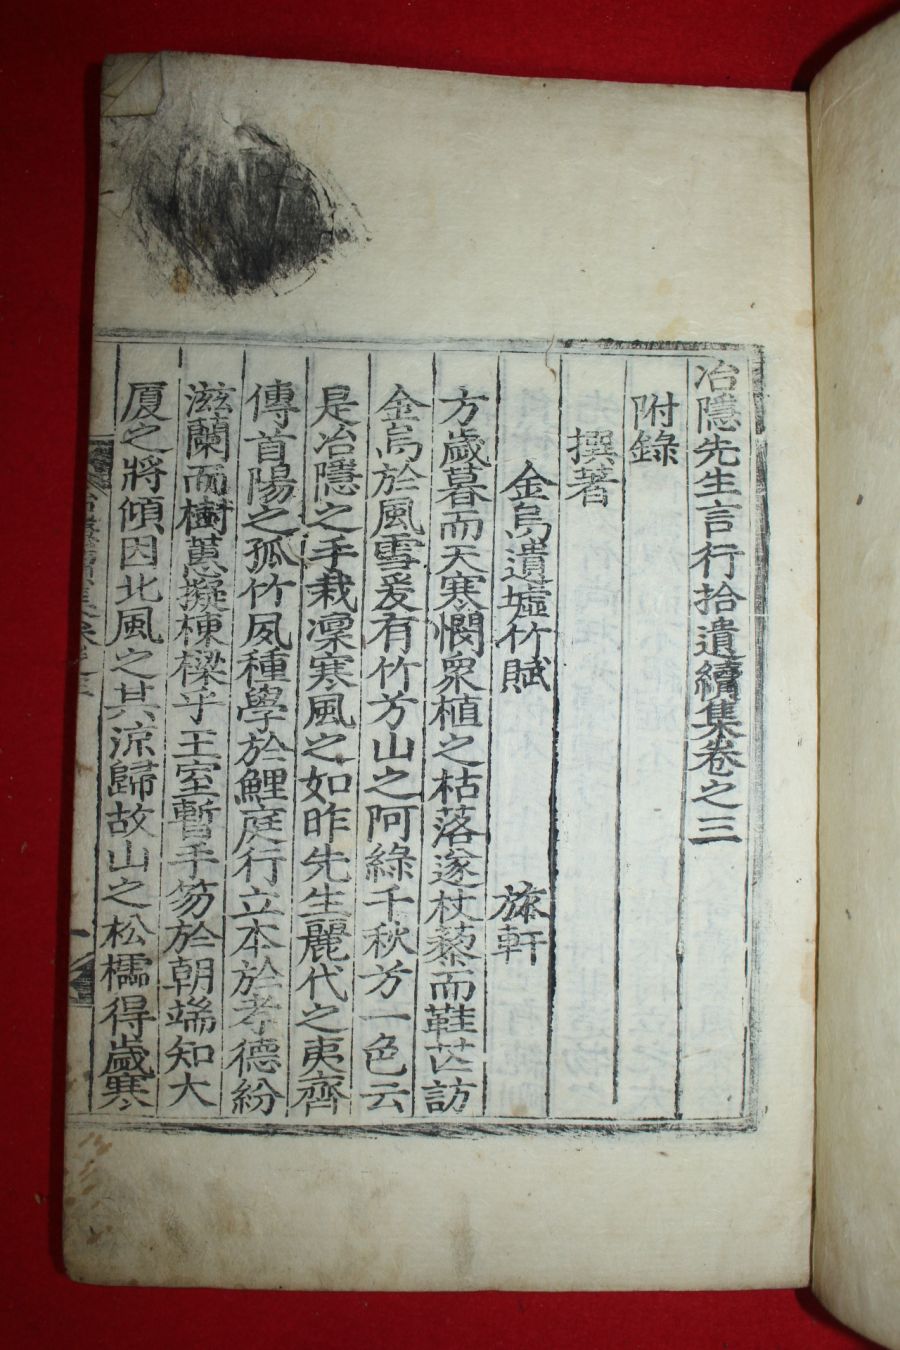 冶隱先生言行拾遺續集卷之三
附錄
撰著
金烏遺墟竹賦 旅軒
方歲暮而天寒憫衆植之枯落遂杖藜而鞋芒訪
金烏於風雪爰有竹芳山之阿綠千秋芳一色云
是冶隱之手栽凜寒風之如昨先生麗代之夷齊
傳首陽之孤竹夙種學於鯉庭行立本於孝德紛
滋蘭而樹蕙擬棟樑乎王室暫手笏於朝端知大
厦之將傾因北風之其凉歸故山之松櫺得歲寒